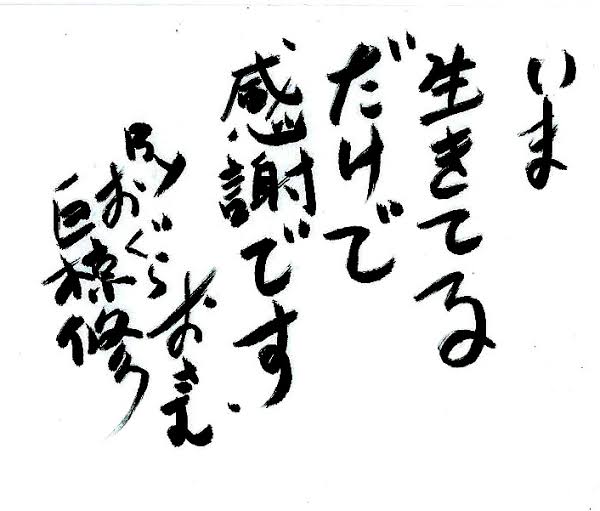 いま
生きてる
だけで
感謝です
By おぐら おさむ
巨椋修